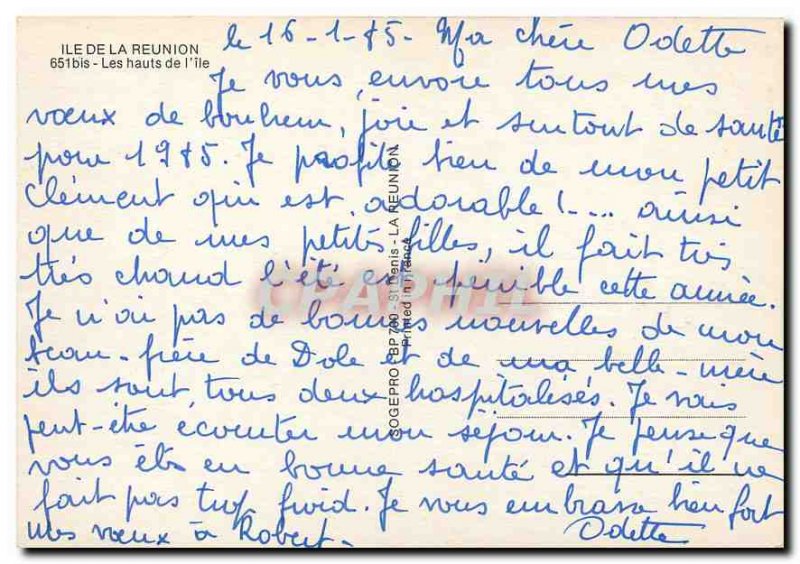 ILE DE LA REUNION
651bis - Les hauts de l'île
le 16-1-85- Ma chère Odette
Je vous envoie tous mes
vœux de bonheur, joie et surtout de santé
pour 1985. Je profite bien de mon petit
Clément qui est adorable !.... ainsi
que de mes petites filles, il fait très
très chaud l'été est pénible cette année.
Je n'ai pas de bonnes nouvelles de mon
beau-frère de Dole et de ma belle-mère
ils sont tous deux hospitalisés. Je vais
peut-être écourter mon séjour. Je pense que
vous êtes en bonne santé et qu'il ne
fait pas trop froid. Je vous embrasse bien fort
mes vœux à Robert- Odette
SOGEPRO - BP 700 - St Denis - LA REUNION
Printed in France
CPAPHIL